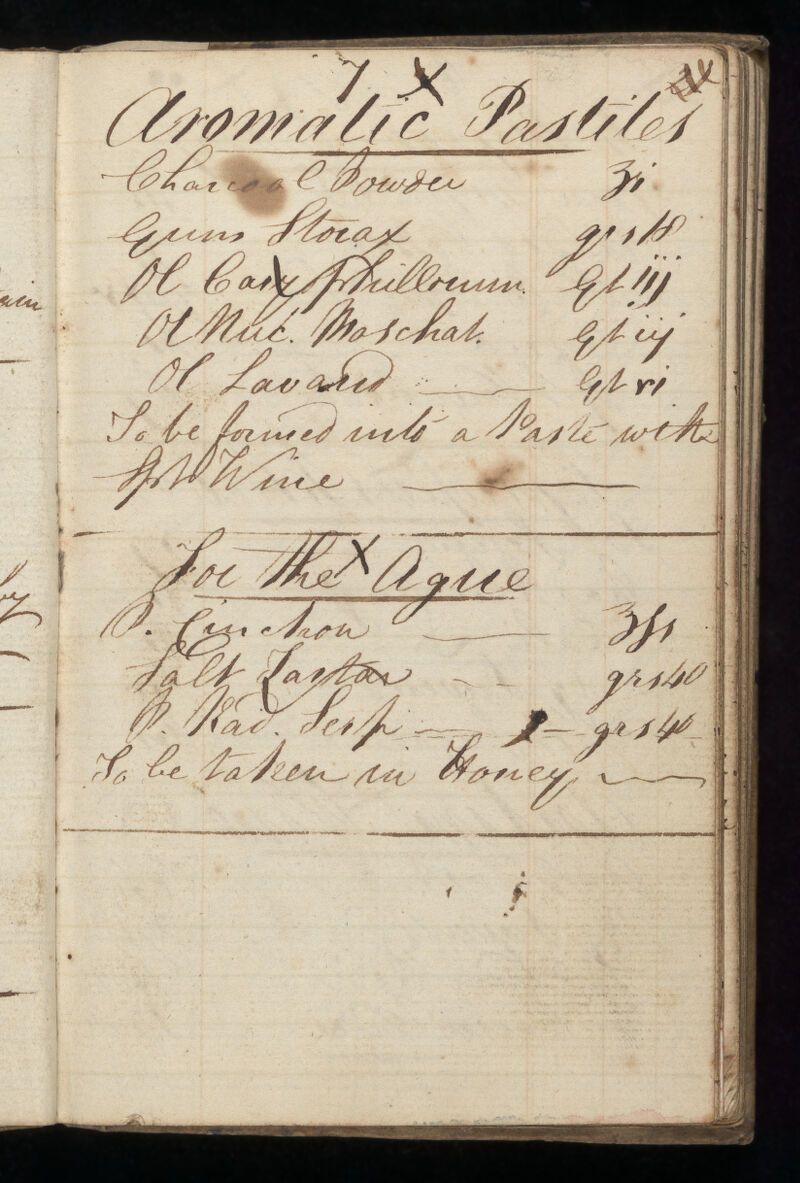 7 X
Aromatic Pastiles
Charcoal Powder ʒi
Gum Storax grs 18
Ol Caryophillorum. Gt iij
Ol Nuc. Moschat. Gt iij
Ol Lavand Gt vi
To be formed into a Paste with
Spt Wine
For the X Ague
P. Cinchon ʒſs
Salt Tartar grs 40
P. Rad. Serp grs 40
To be taken in Honey